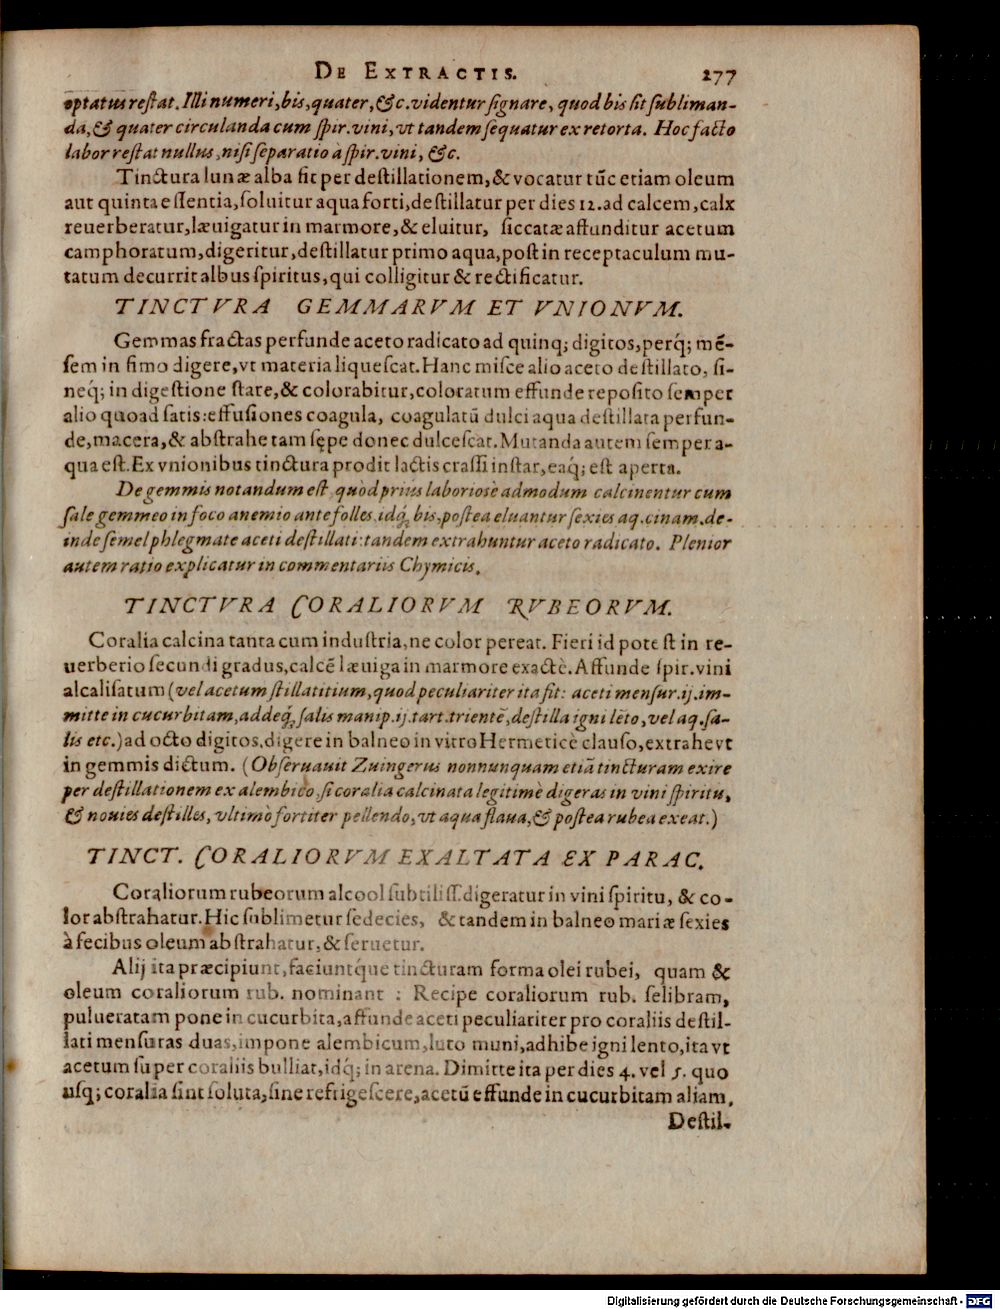 DE EXTRACTIS. 277
optatus restat. Illi numeri, bis, quater, &c. videntur signare, quod bis sit subliman-
da, & quater circulanda cum spir. vini, vt tandem sequatur ex retorta. Hoc facto
labor restat nullus, nisi separatio à spir. vini, &c.
Tinctura lunæ alba fit per destillationem, & vocatur tũc etiam oleum
aut quinta essentia, soluitur aqua forti, destillatur per dies 12. ad calcem, calx
reuerberatur, læuigatur in marmore, & eluitur, siccatæ affunditur acetum
camphoratum, digeritur, destillatur primo aqua, post in receptaculum mu-
tatum decurrit albus spiritus, qui colligitur & rectificatur.
TINCTVRA GEMMARVM ET VNIONVM.
Gemmas fractas perfunde aceto radicato ad quinq; digitos, perq́; mẽ-
sem in fimo digere, vt materia liquescat. Hanc misce alio aceto destillato, si-
neq́; in digestione stare, & colorabitur, coloratum effunde reposito semper
alio quoad satis: effusiones coagula, coagulatũ dulci aqua destillata perfun-
de, macera, & abstrahe tam sępe donec dulcescat. Mutanda autem semper a-
qua est. Ex vnionibus tinctura prodit lactis crassi instar, eaq́; est aperta.
De gemmis notandum est, quòd prius laboriosè admodum calcinentur cum
sale gemmeo in foco anemio ante folles, idq́, bis, postea eluantur sexies aq. cinam. de-
inde semel phlegmate aceti destillati: tandem extrahuntur aceto radicato. Plenior
autem ratio explicatur in commentariis Chymicis.
TINCTVRA CORALIORVM RVBEORVM.
Coralia calcina tanta cum industria, ne color pereat. Fieri id potest in re-
uerberio secundi gradus, calcẽ læuiga in marmore exactè. Affunde spir. vini
alcalisatum (vel acetum stillatitium, quod peculiariter ita fit: aceti mensur. ij. im-
mitte in cucurbitam, addeq́, salis manip. ij. tart. trientẽ, destilla igni lẽto, vel aq. sa-
lis etc.) ad octo digitos, digere in balneo in vitro Hermeticè clauso, extrahe vt
in gemmis dictum. (Obseruauit Zuingerus nonnunquam etiã tincturam exire
per destillationem ex alembico, si coralia calcinata legitimè digeras in vini spiritu,
& nouies destilles, vltimò fortiter pellendo, vt aqua flaua, & postea rubea exeat.)
TINCT. CORALIORVM EXALTATA EX PARAC.
Coraliorum rubeorum alcool subtiliss. digeratur in vini spiritu, & co-
lor abstrahatur. Hic sublimetur sedecies, & tandem in balneo mariæ sexies
à fecibus oleum abstrahatur, & seruetur.
Alij ita præcipiunt, faciuntq́ue tincturam forma olei rubei, quam &
oleum coraliorum rub. nominant : Recipe coraliorum rub. selibram,
pulueratam pone in cucurbita, affunde aceti peculiariter pro coraliis destil-
lati mensuras duas, impone alembicum, luto muni, adhibe igni lento, ita vt
acetum super coraliis bulliat, idq́; in arena. Dimitte ita per dies 4. vel 5. quo
usq; coralia sint soluta, sine refrigescere, acetũ effunde in cucurbitam aliam.
Destil-
Digitalisierung gefördert durch die Deutsche Forschungsgemeinschaft - DFG